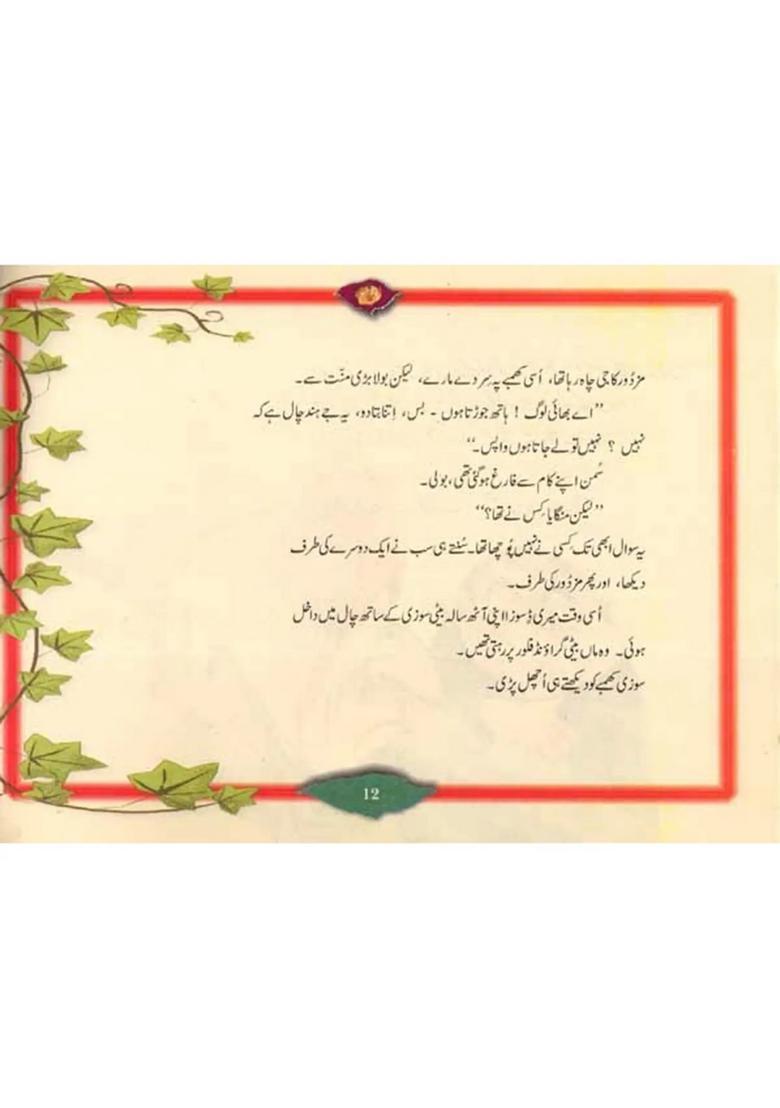 مزدُور کا جی چاہ رہا تھا، اُسی کھمبے پہ سِر دے مارے، لیکن بولا بڑی منّت سے۔
”اے بھائی لوگ ! ہاتھ جوڑتا ہوں - بس، اِتنا بتا دو، یہ جے ہند چال ہے کہ
نہیں ؟ نہیں تو لے جاتا ہوں واپس۔“
سُمن اپنے کام سے فارغ ہو گئی تھی، بولی۔
”لیکن منگایا کِس نے تھا؟“
یہ سوال ابھی تک کِسی نے نہیں پُوچھا تھا۔ سُنتے ہی سب نے ایک دوسرے کی طرف
دیکھا، اور پھر مزدُور کی طرف۔
اُسی وقت میری ڈِسوزا اپنی آٹھ سالہ بیٹی سوزی کے ساتھ چال میں داخل
ہوئی۔ وہ ماں بیٹی گراؤنڈ فلور پر رہتی تھیں۔
سوزی کھمبے کو دیکھتے ہی اُچھل پڑی۔
12